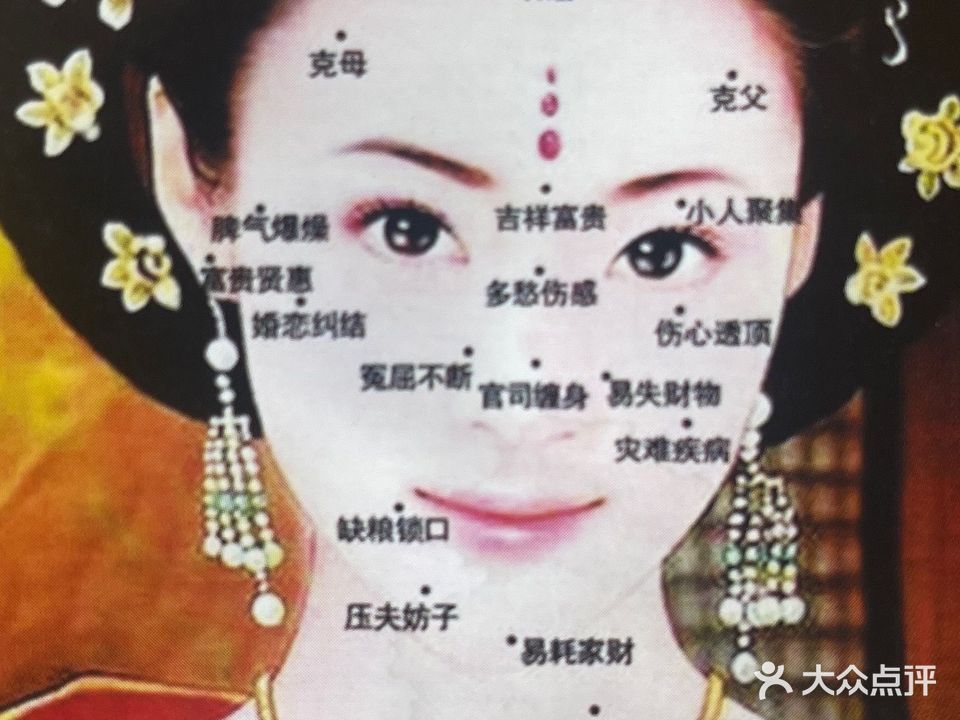 克母
克父
脾气爆燥
吉祥富贵
小人聚集
富贵贤惠
多愁伤感
婚恋纠结
伤心透顶
冤屈不断
官司缠身
易失财物
灾难疾病
缺粮锁口
压夫妨子
易耗家财
大众点评